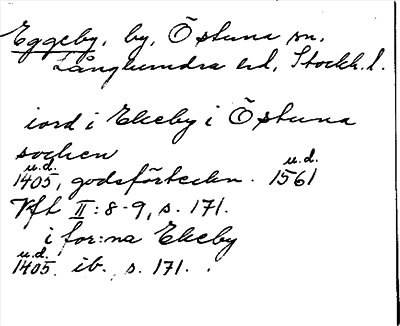 Eggeby, by, Östuna sn.
Långhundra hd, Stockh. l.
iord i Ekeby i Östuna
sochen
u.d. u.d.
1405, godsförteckn. 1561
Vft II: 8-9, s. 171.
i for:na Ekeby
u.d.
1405. ib., s. 171.